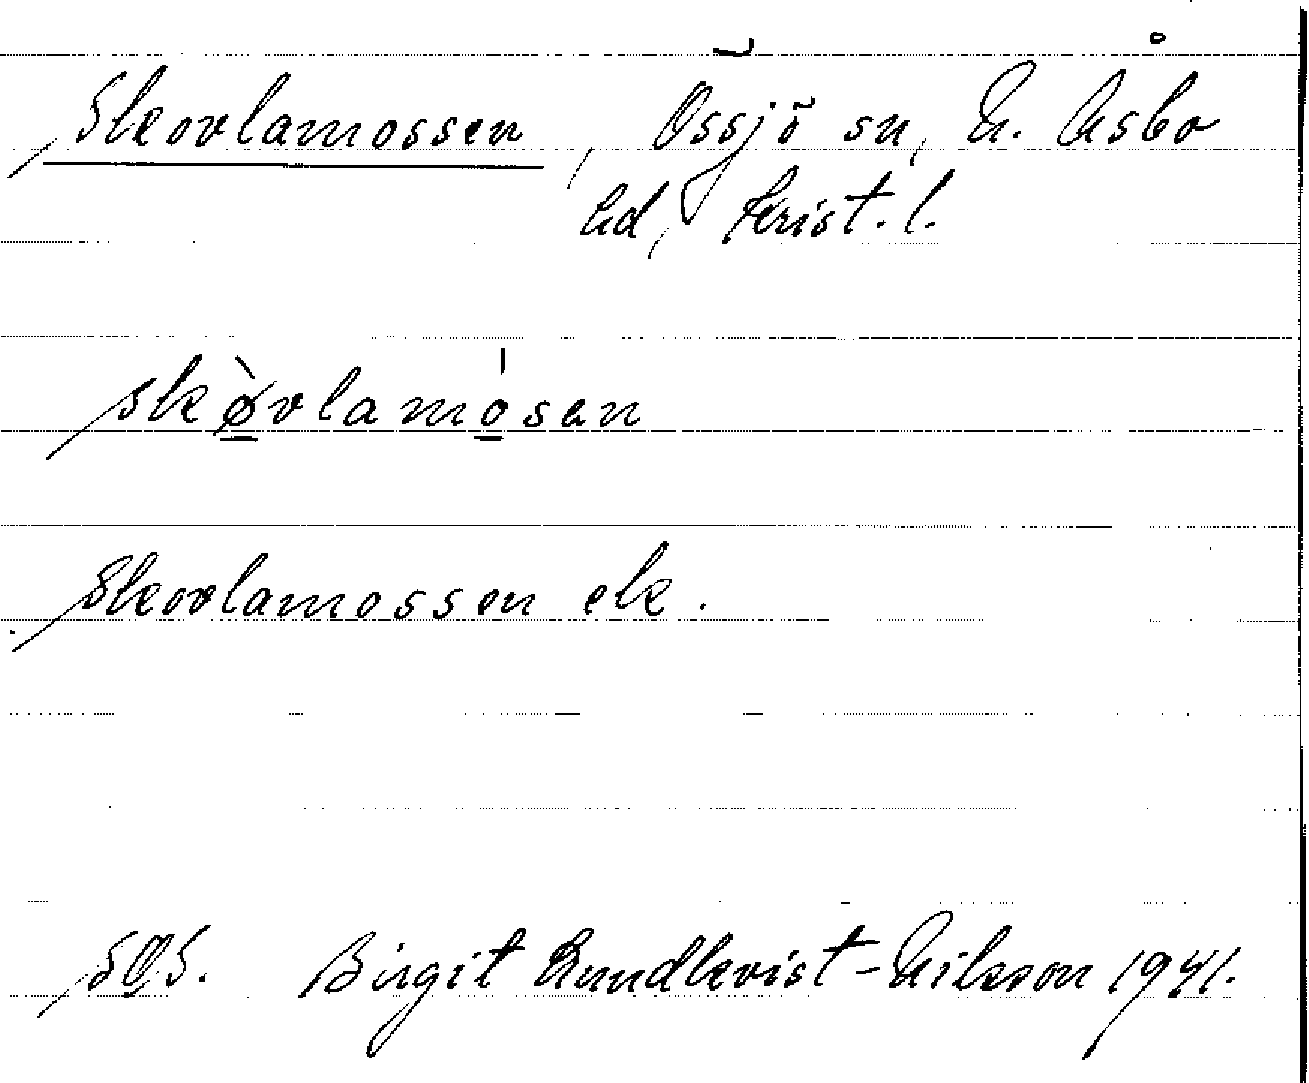 Skovlamossen, Össjö sn, N. Åsbo
hd, Krist. l.
skø̀vlamósan
Skovlamossen ek.
SOS. Birgit Lundkvist-Nilsson 1941.